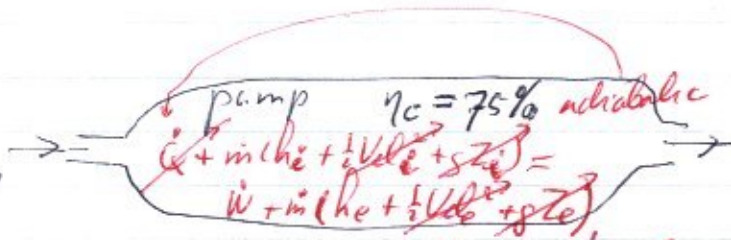 pump η_c = 75% adiabatic
Q̇ + ṁ(h_i + ½Vel_i² + gZ_i) =
Ẇ + ṁ(h_e + ½Vel_e² + gZ_e)